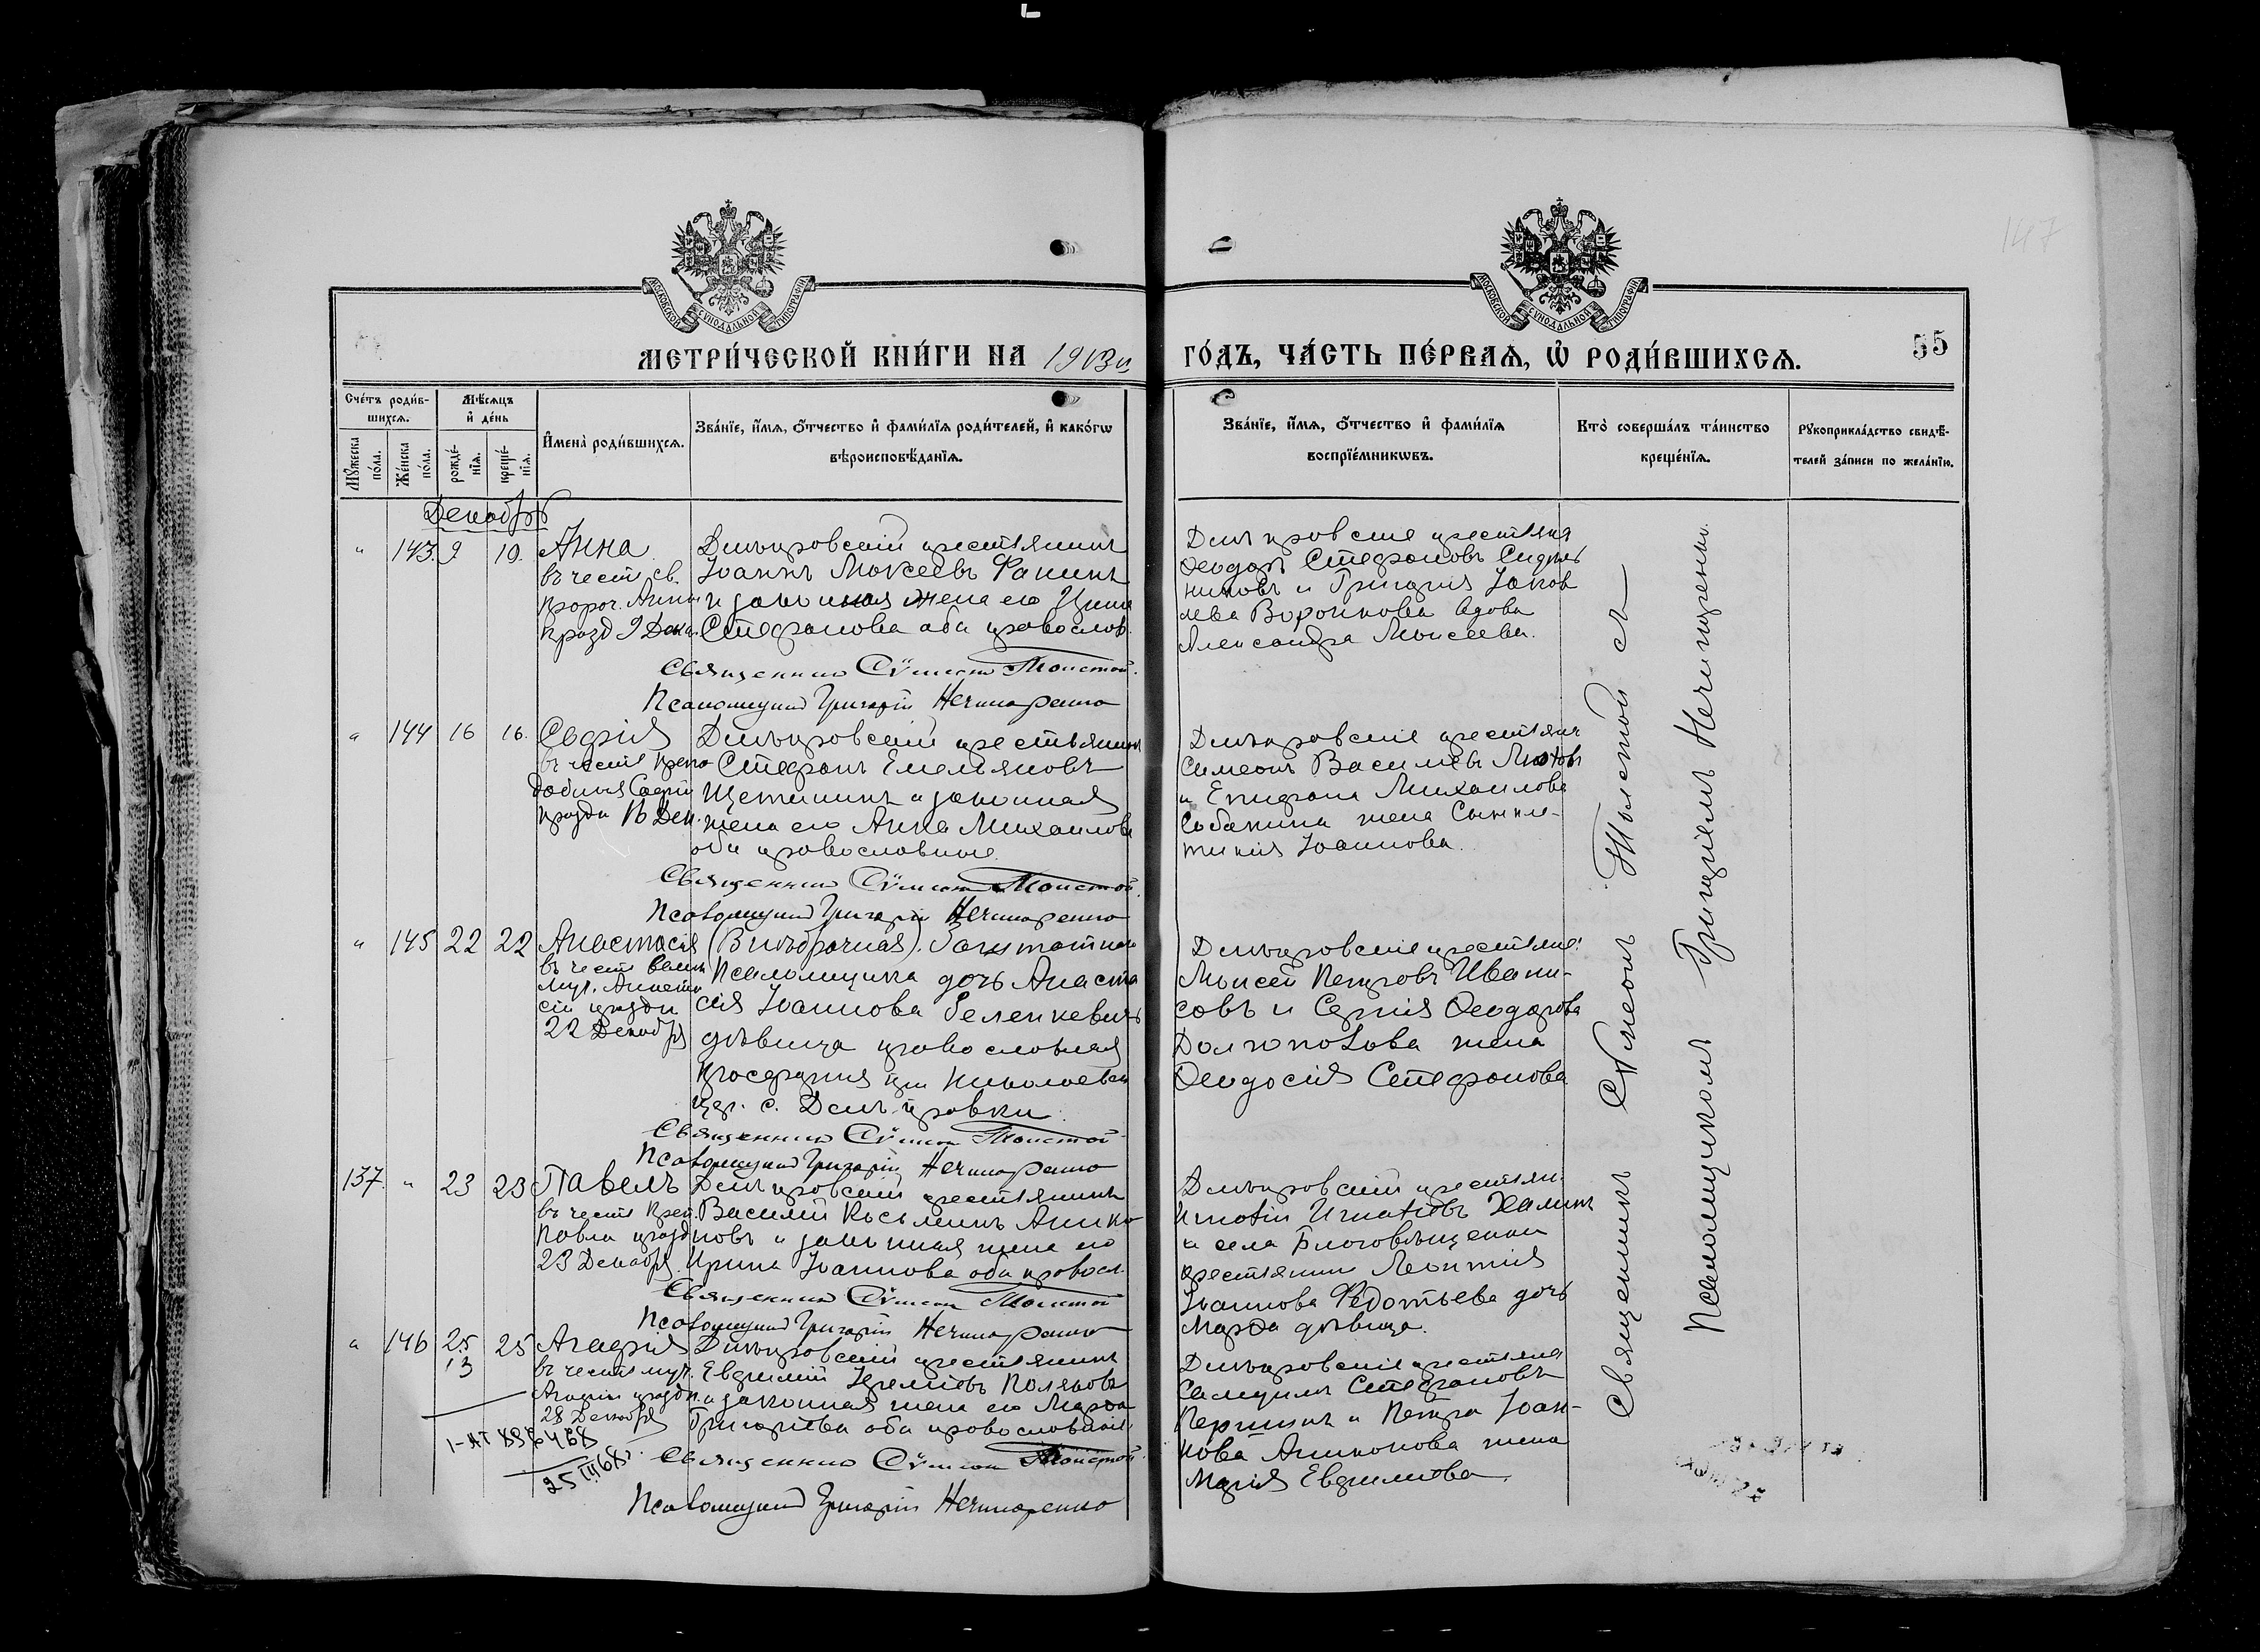 147
МОСКОВСКОЙ СѴНОДАЛЬНОЙ ТИПОГРАФІИ
МОСКОВСКОЙ СѴНОДАЛЬНОЙ ТИПОГРАФІИ
МЕТРИ́ЧЕСКОЙ КНИ́ГИ НА 1913й ГО́ДЪ, ЧА́СТЬ ПЕ́РВАѦ, Ѡ҆ РОДИ́ВШИХСѦ.
55
Сче́тъ роди́в-
шихсѧ.
Мꙋ́жеска по́ла.
Же́нска по́ла.
Мѣ́сѧцъ
и҆ де́нь
рожде́-
нїѧ.
креще́-
нїѧ.
И҆мена̀ роди́вшихсѧ.
Зва́нїе, и҆́мѧ, ѻ҆́тчество и҆ фами́лїѧ роди́телей, и҆ како́гѡ
вѣроисповѣ́данїѧ.
Зва́нїе, и҆́мѧ, ѻ҆́тчество и҆ фами́лїѧ
воспрїе́мникѡвъ.
Кто̀ соверша́лъ та́инство
креще́нїѧ.
Рꙋкоприкла́дство свидѣ́-
телей за́писи по жела́нїю.
Декабрь
" 143. 9 10. Анна
въ честь св.
прор. Анны
празд 9 Дек.
Дмитровскій крестьянинъ
Іоаннъ Моксеевъ Фанинъ
и законная жена его
Стефанова оба православ.
Священникъ Сѵмеонъ Толстой.
Псаломщикъ Григорій Нечипоренко
Дмитровскіе крестьяне
Ѳеодоръ Стефановъ
и Григорія Іаков
лева Воронкова вдова
Александра Моисеева.
" 144 16 16. Софія
въ честь препо
добныя Софіи
праздн 16 Дек.
Дмитровскій крестьянинъ
Стефанъ Емельяновъ
Щетининъ и законная
жена его Анна Михаилова
оба православные.
Священникъ Сѵмеонъ Толстой.
Псаломщикъ Григорій Нечипоренко
Дмитровскіе крестьяне
Симеонъ Василіевъ
и Епифана Михаилова
Собакина жена Синкли-
тикія Іоаннова.
" 145 22 22 Анастасія
въ честь велик
муч. Анаста
сіи праздн
22 Декабря
(Внѣбрачная). Заштатнаго
Псаломщика дочь Анаста
сія Іоаннова Зеленкевичъ
дѣвица православная
просфорня при Николаевск
цер. с. Дмитровки.
Священникъ Сѵмеонъ Толстой
Псаломщикъ Григорій Нечипоренко
Дмитровскіе крестьяне:
Моисей Петровъ Ивани-
совъ и Сергія Ѳеодорова
Долгополова жена
Ѳеодосія Стефанова
137. " 23 23 Павелъ
въ честь преп.
Павла праздн
23 Декабря.
Дмитровскій крестьянинъ
Василій Косьминъ Анико
новъ и законная жена его
Ирина Іоаннова оба правосл.
Священникъ Сѵмеонъ Толстой
Псаломщикъ Григорій Нечипоренко
Дмитровскій крестьян.
Игнатій Игнатіевъ Халинъ
и села Благовѣщенки
крестьянина Леонтія
Іоаннова Федотьева дочь
Марфа дѣвица.
" 146 25 25 Агафія
13
въ честь муч.
Агафіи праздн.
28 Декабря
Дмитровскій крестьянинъ
Евфимій Іереміевъ Поляковъ
и законная жена его Марфа
Григоріева оба православные.
Священникъ Сѵмеонъ Толстой.
Псаломщикъ Григорій Нечипоренко
Дмитровскіе крестьяне
Самуилъ Стефановъ
Першинъ и Петра Іоан-
нова Аниконова жена
Марія Евфимова.
25 III 68г.
Священникъ Сѵмеонъ Толстой съ
Псаломщикомъ Григоріемъ Нечипоренко.